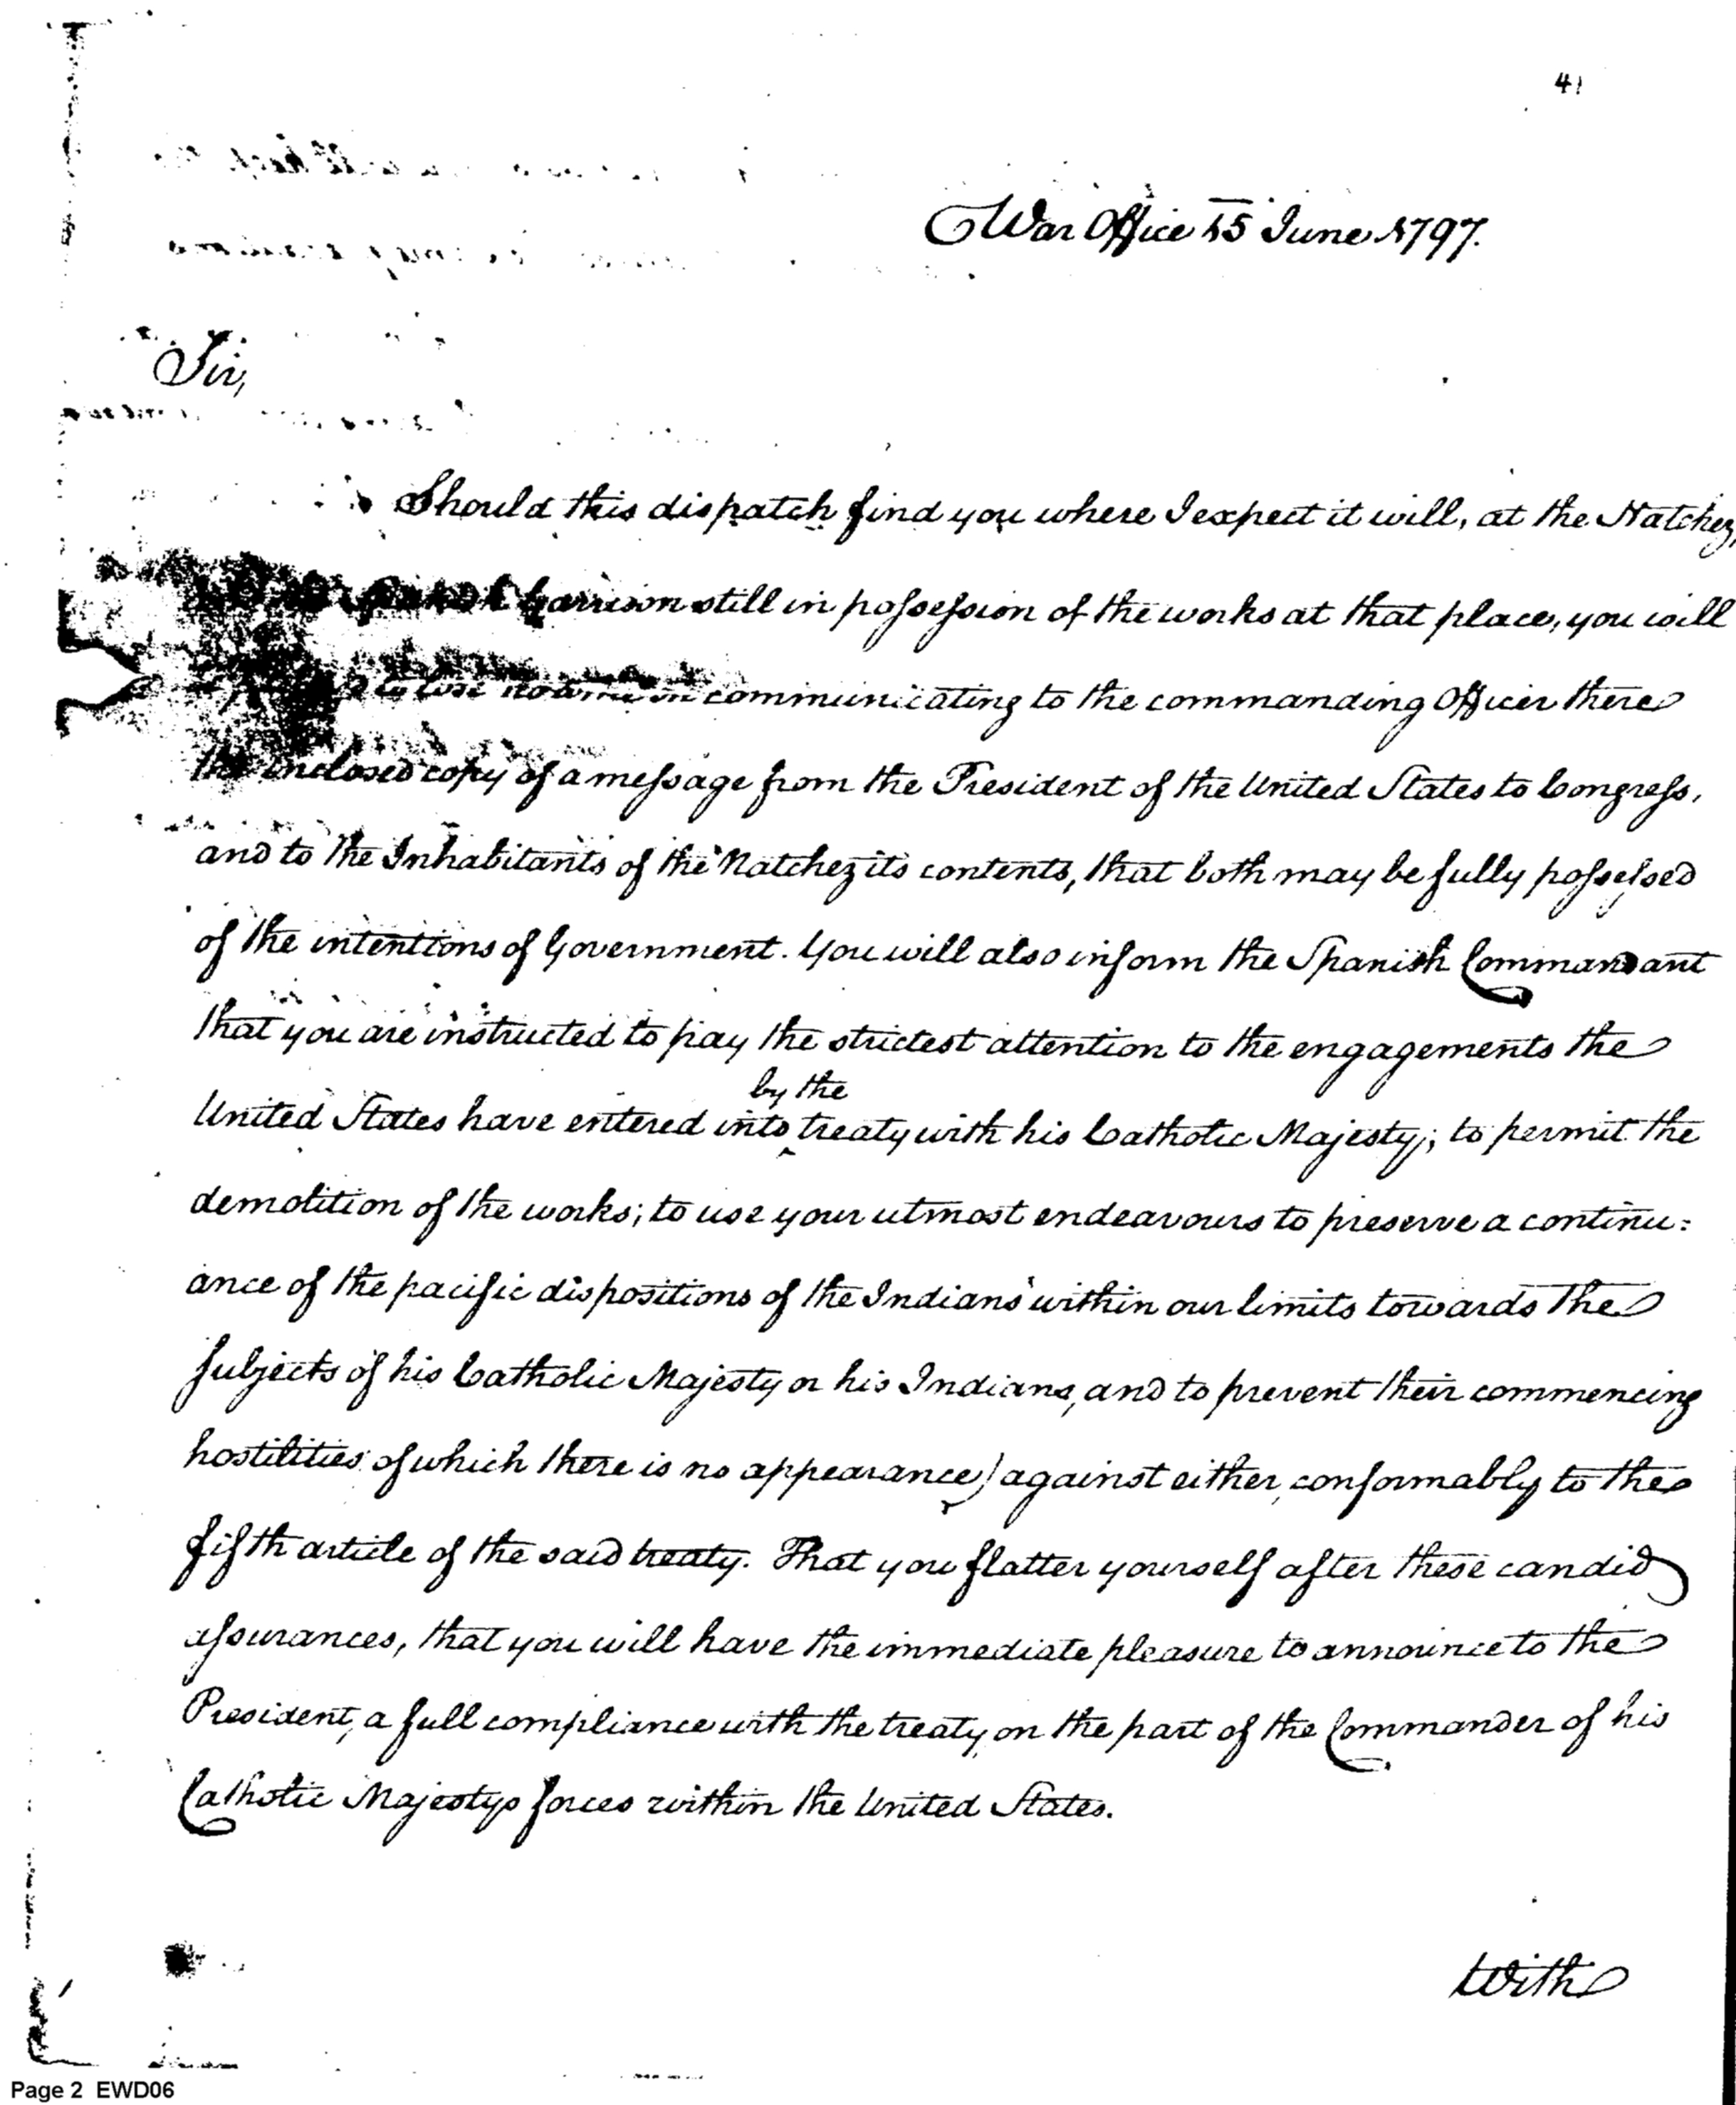 41
War Office 15 June 1797.
Sir,
Should this dispatch find you where I expect it will, at the Natchez,
Garrison still in possession of the works at that place, you will
to lose no time in communicating to the commanding Officer there
the enclosed copy of a message from the President of the United States to Congress,
and to the Inhabitants of the Natchez its contents, that both may be fully possessed
of the intentions of Government. You will also inform the Spanish Commandant
that you are instructed to pay the strictest attention to the engagements the
by the
United States have entered into treaty with his Catholic Majesty; to permit the
demolition of the works; to use your utmost endeavours to preserve a continu=
ance of the pacific dispositions of the Indians within our limits towards the
subjects of his Catholic Majesty or his Indians, and to prevent their commencing
hostilities of which there is no appearance) against either, conformably to the
fifth article of the said treaty. That you flatter yourself after these candid
assurances, that you will have the immediate pleasure to announce to the
President, a full compliance with the treaty, on the part of the Commander of his
Catholic Majestys forces within the United States.
With
Page 2 EWD06